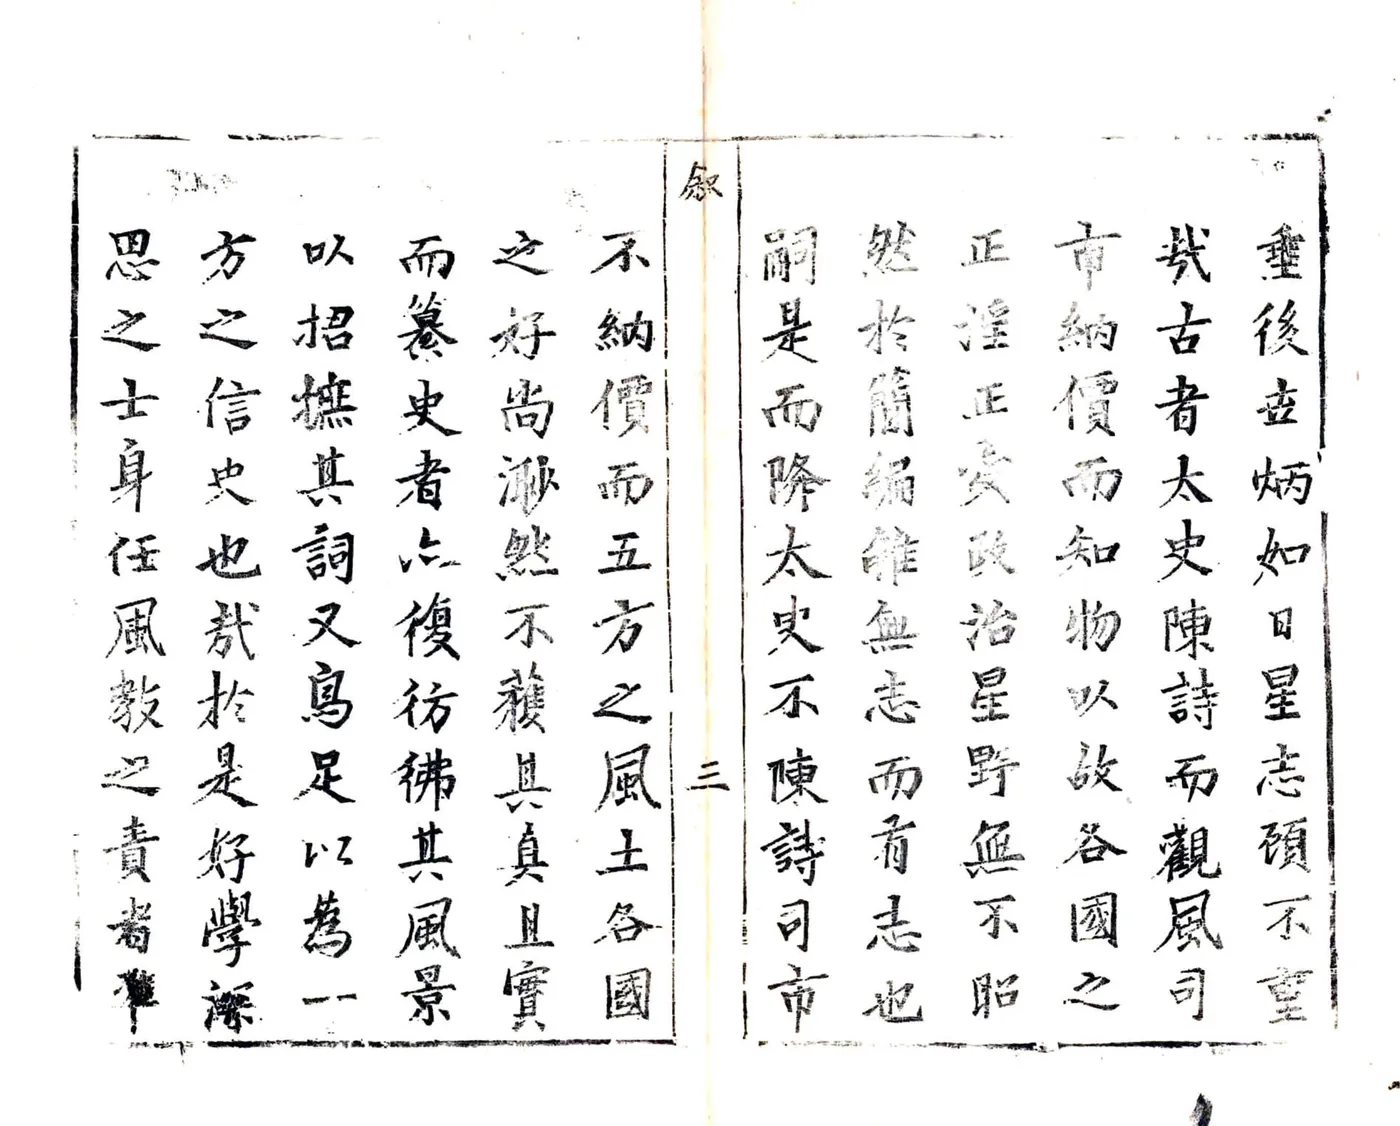 垂後世炳如日星志顧不重
哉古者太史陳詩而觀風司
市納價而知物以故各國之
正淫正変政治星野無不昭
然於簡編雖無志而有志也
嗣是而降太史不陳詩司市
叙
三
不納價而五方之風土各國
之好尚渺然不獲其真且實
而纂史者亦復彷彿其風景
以招摭其詞又烏足以為一
方之信史也哉於是好學深
思之士身任風教之責者